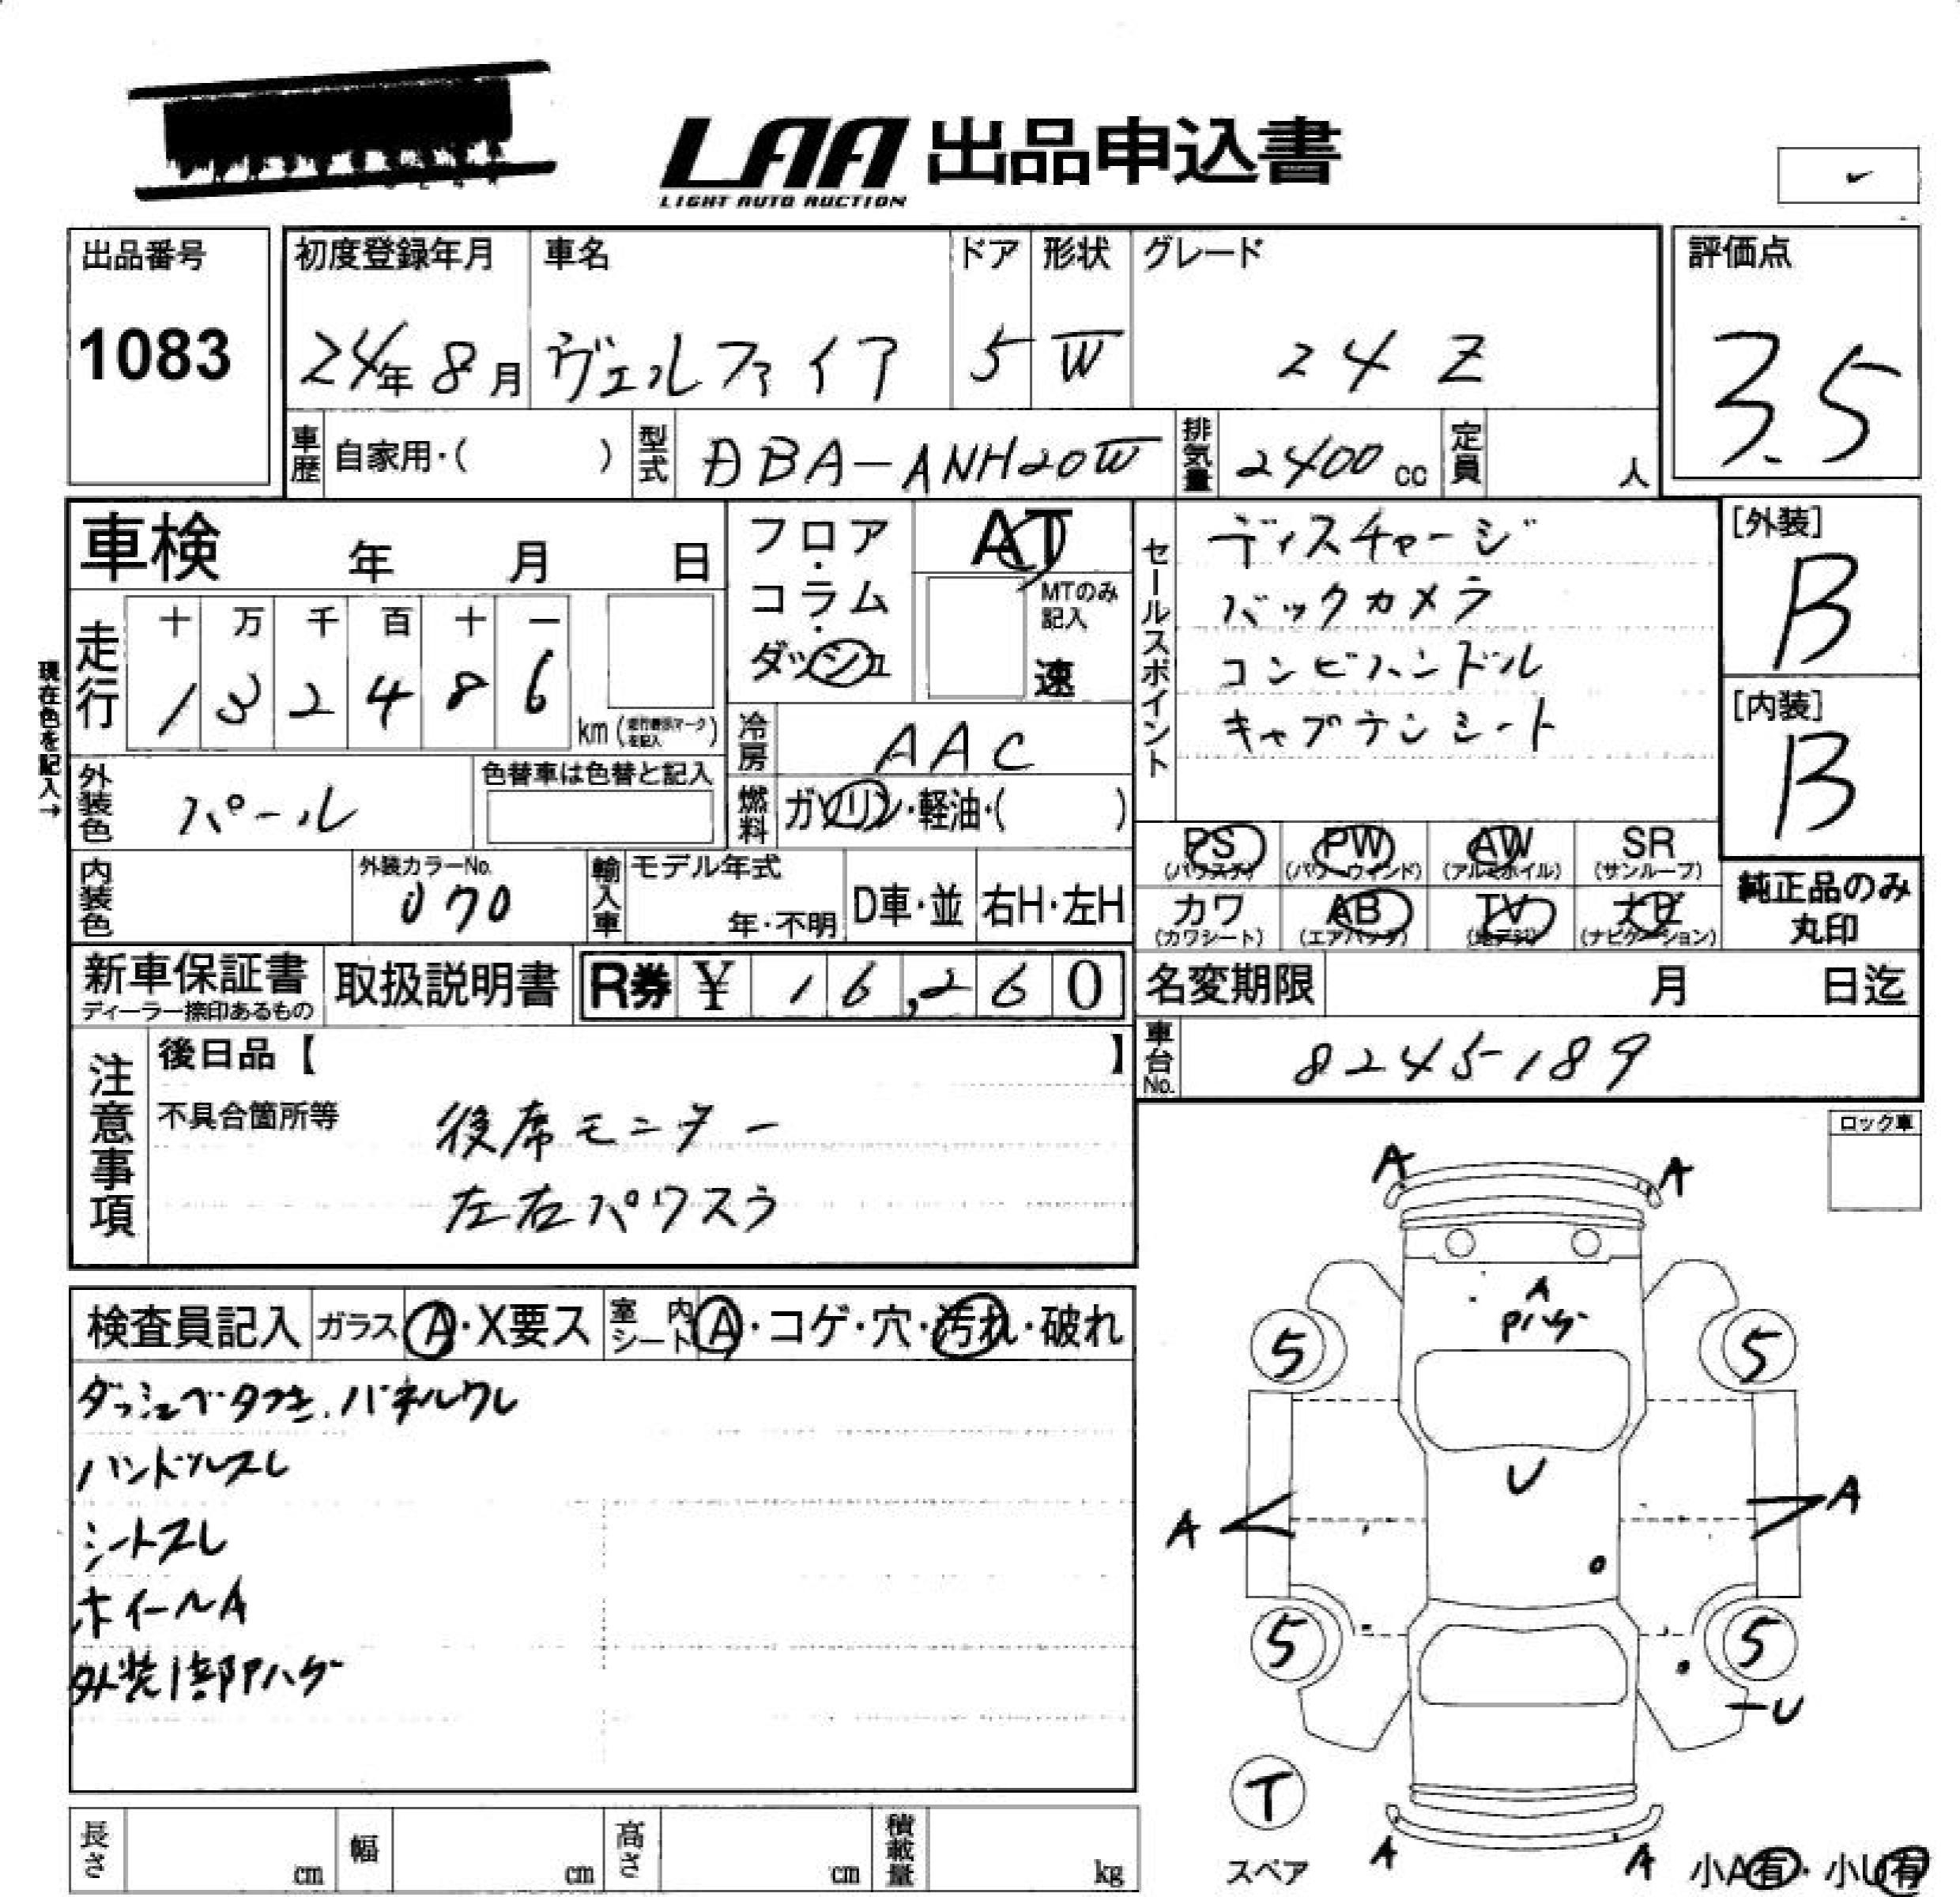 LAA 出品申込書
LIGHT AUTO AUCTION
出品番号
1083
初度登録年月 車名 ドア 形状 グレード
24年 8月 ヴェルファイア 5 W 24 Z
評価点
3.5
車歴 自家用・( ) 型式 DBA-ANH20W 排気量 2400 cc 定員 人
車検 年 月 日
フロア・コラム・ダッシュ
AT
MTのみ記入
速
現在色を記入→
走行 十 万 千 百 十 一
1 3 2 4 8 6 km
冷房 AAC
燃料 ガソリン・軽油・( )
外装色 パール
色替車は色替と記入
セールスポイント
ディスチャージ
バックカメラ
コンビハンドル
キャプテンシート
[外装]
B
[内装]
B
内装色
外装カラーNo.
070
輸入車 モデル年式
年・不明 D車・並 右H・左H
PS PW AW SR
(パワステ) (パワーウィンド) (アルミホイル) (サンルーフ)
カワ AB TV ナビ
(カワシート) (エアバッグ) (地デジ) (ナビゲーション)
純正品のみ
丸印
新車保証書
ディーラー捺印あるもの
取扱説明書
R券 ¥ 16,260
名変期限 月 日迄
車台No. 8245189
注意事項
後日品【 】
不具合箇所等
後席モニター
左右パワスラ
ロック車
検査員記入 ガラス A・X要ス 室内シート A・コゲ・穴・汚れ・破れ
ダッシュベタつき、パネルワレ
ハンドルスレ
シートスレ
ホイールA
外装1部Pハゲ
A A
A
Pハゲ
5 5
U
A A
5 5
U
T
スペア
A A
小A有・小U有
長さ cm 幅 cm 高さ cm 積載量 kg